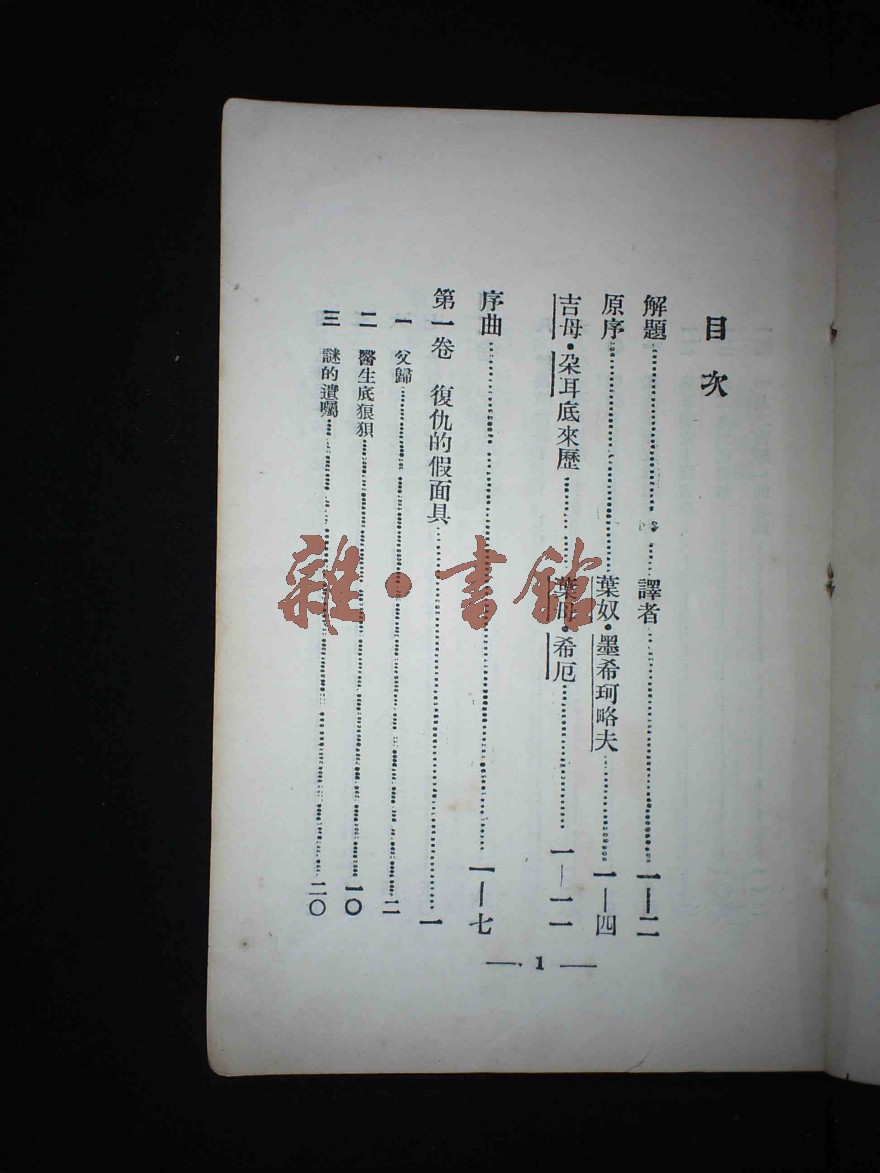 目次
解題……譯者……一—二
原序……葉奴·墨希珂略夫……一—四
吉母·朶耳底來歷……葉母·希厄……一—一一
序曲……一—七
第一卷　復仇的假面具……一
一　父歸……二
二　醫生底狼狽……一〇
三　謎的遺囑……二〇
— 1 —
雜·書館